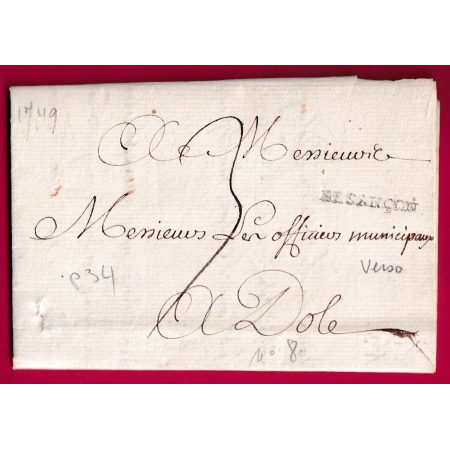 1749
A Messieurs
BESANÇON
Messieurs Les officiers municipaux
Verso
p34
A Dole
n° 8